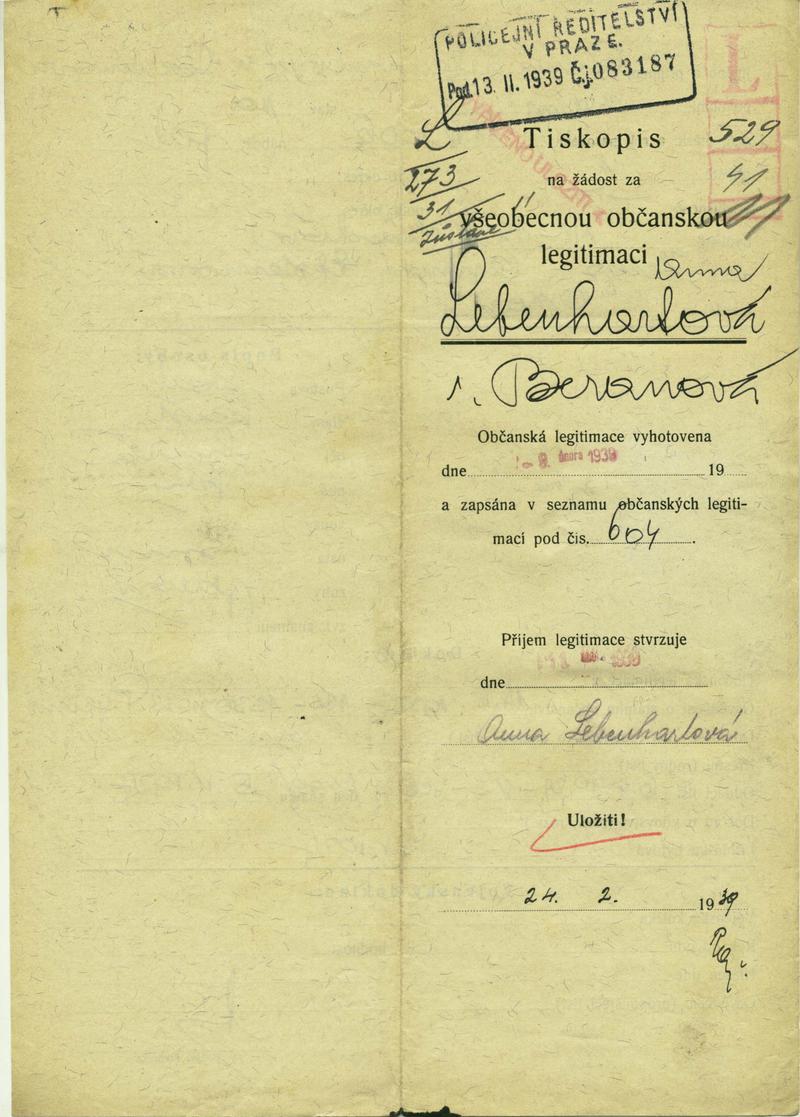 POLICEJNÍ ŘEDITELSTVÍ
V PRAZE.
Pod. 13. II. 1939 Č.j. 083187
L
273
31
Tiskopis
529
41
na žádost za
všeobecnou občanskou
legitimaci
Anna
Lebenhartová
r. Beranová
Občanská legitimace vyhotovena
dne - 8. února 1939 19
a zapsána v seznamu občanských legiti-
mací pod čís. 604.
Příjem legitimace stvrzuje
dne
Anna Lebenhartová
Uložiti!
24. 2. 1939